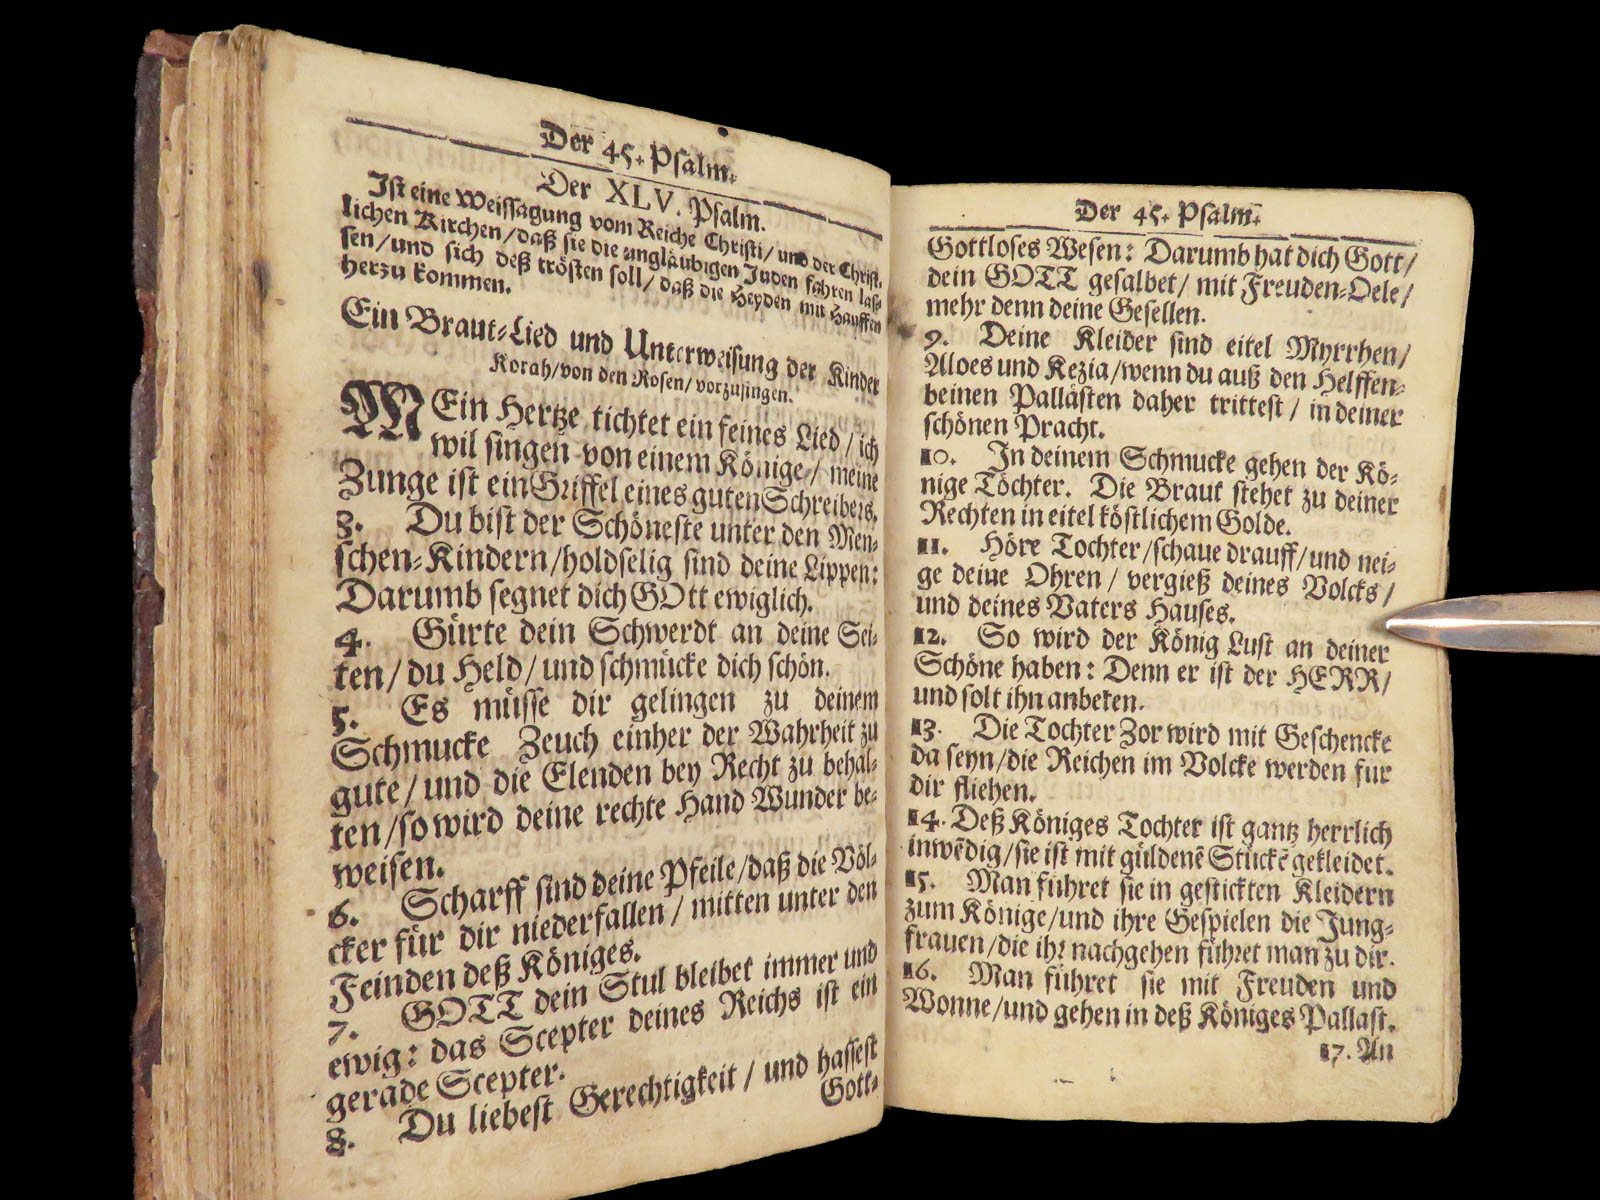 Der 45. Psalm.
Der XLV. Psalm.
Ist eine Weissagung vom Reiche Christi/ und der Christ-
lichen Kirchen/ daß sie die unglaubigen Juden fahren las-
sen/ und sich deß trösten soll/ daß die Heyden mit Hauffen
herzu kommen.
Ein Braut-Lied und Unterweisung der Kinder
Korah/ von den Rosen/ vorzusingen.
MEin Hertze tichtet ein feines Lied/ ich
wil singen von einem Könige/ meine
Zunge ist ein Griffel eines guten Schreibers.
3. Du bist der Schöneste unter den Men-
schen-Kindern/ holdselig sind deine Lippen:
Darumb segnet dich GOtt ewiglich.
4. Gürte dein Schwerdt an deine Sei-
ten/ du Held/ und schmücke dich schön.
5. Es müsse dir gelingen zu deinem
Schmucke Zeuch einher der Wahrheit zu
gute/ und die Elenden bey Recht zu behal-
ten/ so wird deine rechte Hand Wunder be-
weisen.
6. Scharff sind deine Pfeile/ daß die Völ-
cker für dir niederfallen/ mitten unter den
Feinden deß Königes.
7. GOTT dein Stul bleibet immer und
ewig: das Scepter deines Reichs ist ein
gerade Scepter.
8. Du liebest Gerechtigkeit/ und hassest
Gott-
Der 45. Psalm.
Gottloses Wesen: Darumb hat dich Gott/
dein GOTT gesalbet/ mit Freuden-Oele/
mehr denn deine Gesellen.
9. Deine Kleider sind eitel Myrrhen/
Aloes und Kezia/ wenn du auß den Helffen-
beinen Pallästen daher trittest/ in deiner
schönen Pracht.
10. In deinem Schmucke gehen der Kö-
nige Töchter. Die Braut stehet zu deiner
Rechten in eitel köstlichem Golde.
11. Höre Tochter/ schaue drauff/ und nei-
ge deine Ohren/ vergieß deines Volcks/
und deines Vaters Hauses.
12. So wird der König Lust an deiner
Schöne haben: Denn er ist der HERR/
und solt ihn anbeten.
13. Die Tochter Zor wird mit Geschencke
da seyn/ die Reichen im Volcke werden für
dir fliehen.
14. Deß Königes Tochter ist gantz herrlich
inwēdig/ sie ist mit güldenē Stückē gekleidet.
15. Man führet sie in gestickten Kleidern
zum Könige/ und ihre Gespielen die Jung-
frauen/ die ihr nachgehen führet man zu dir.
16. Man führet sie mit Freuden und
Wonne/ und gehen in deß Königes Pallast.
17. An